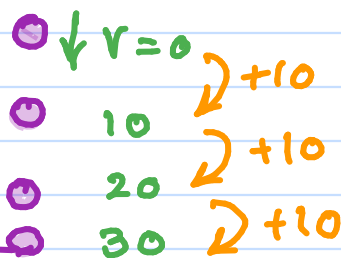 v = 0
+10
10
+10
20
+10
30